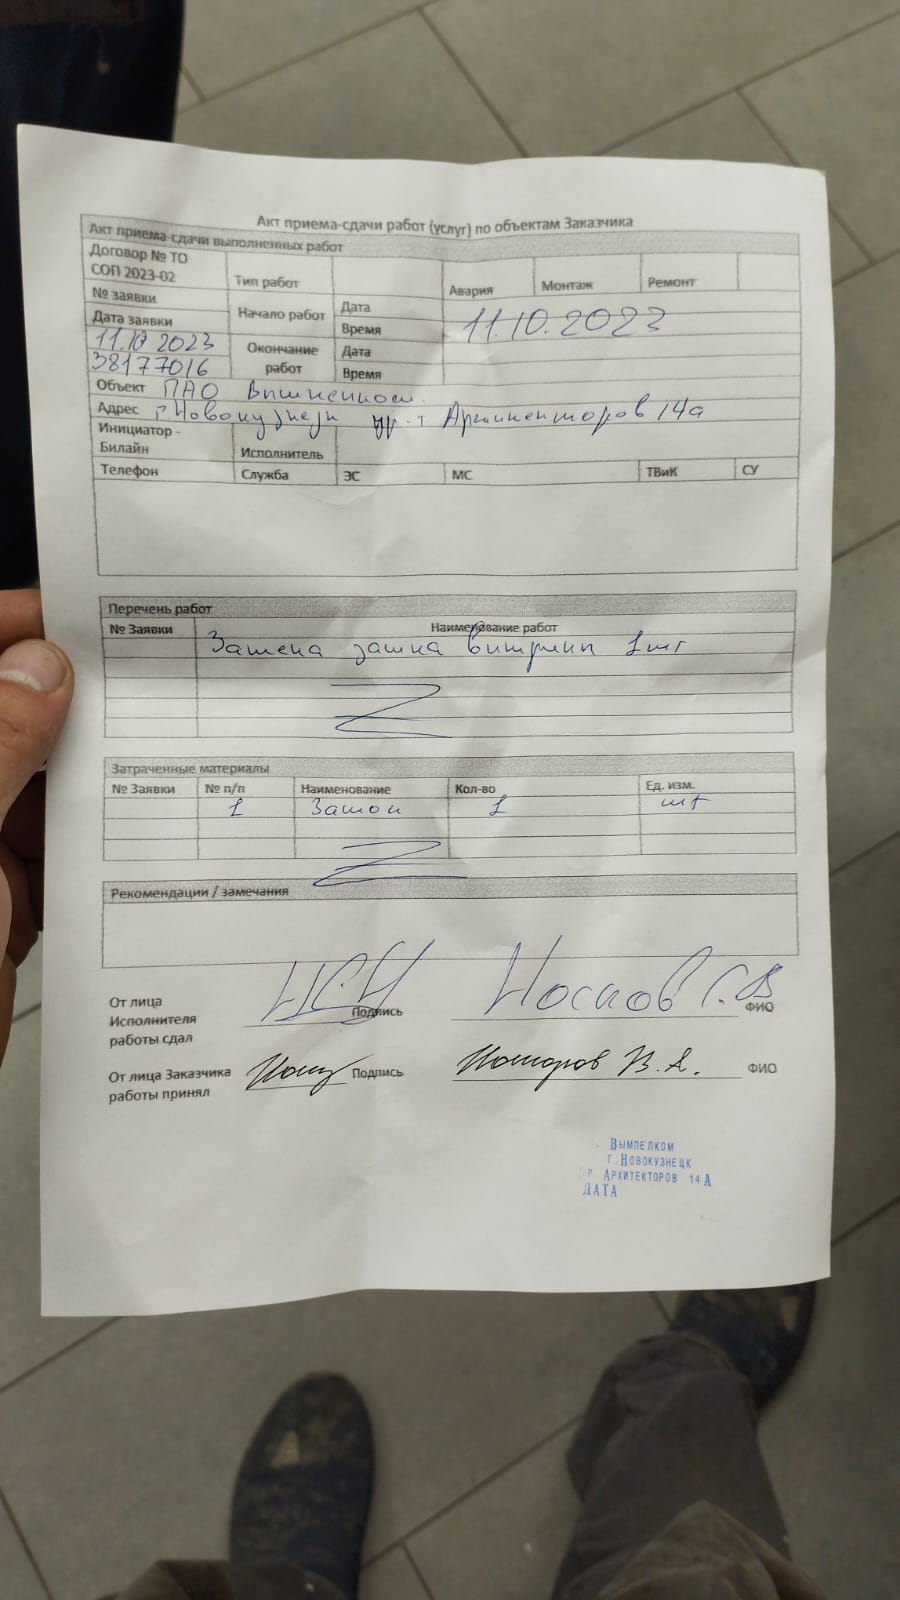 Акт приема-сдачи работ (услуг) по объектам Заказчика
Акт приема-сдачи выполненных работ
Договор № ТО СОП 2023-02
Тип работ Авария Монтаж Ремонт
№ заявки
Дата заявки
11.10 2023
38177016
Начало работ Дата Время 11.10.2023
Окончание работ Дата Время
Объект ПАО Вымпелком
Адрес г. Новокузнецк пр-т Архитекторов 14а
Инициатор - Билайн Исполнитель
Телефон Служба ЭС МС ТВиК СУ
Перечень работ
№ Заявки Наименование работ
Замена замка витрины 1шт
Затраченные материалы
№ Заявки № п/п Наименование Кол-во Ед. изм.
1 Замок 1 шт
Рекомендации / замечания
От лица Исполнителя работы сдал Подпись Носков С.В ФИО
От лица Заказчика работы принял Подпись В.А. ФИО
Вымпелком
г.Новокузнецк
р Архитекторов 14А
ДАТА